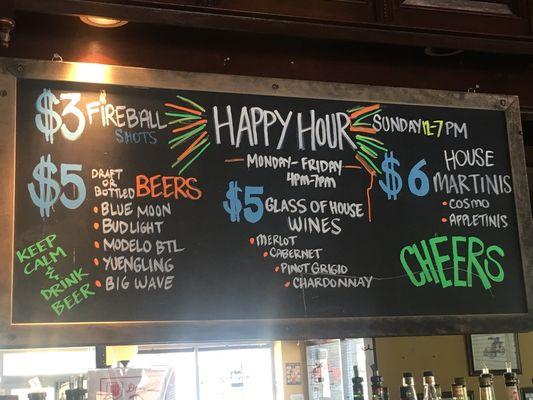 $3 FIREBALL
SHOTS
HAPPY HOUR
MONDAY-FRIDAY
4PM-7PM
SUNDAY 12-7PM
$5 DRAFT
OR
BOTTLED BEERS
BLUE MOON
BUD LIGHT
MODELO BTL
YUENGLING
BIG WAVE
KEEP
CALM
&
DRINK
BEER
$5 GLASS OF HOUSE
WINES
MERLOT
CABERNET
PINOT GRIGIO
CHARDONNAY
$6 HOUSE
MARTINIS
COSMO
APPLETINIS
CHEERS